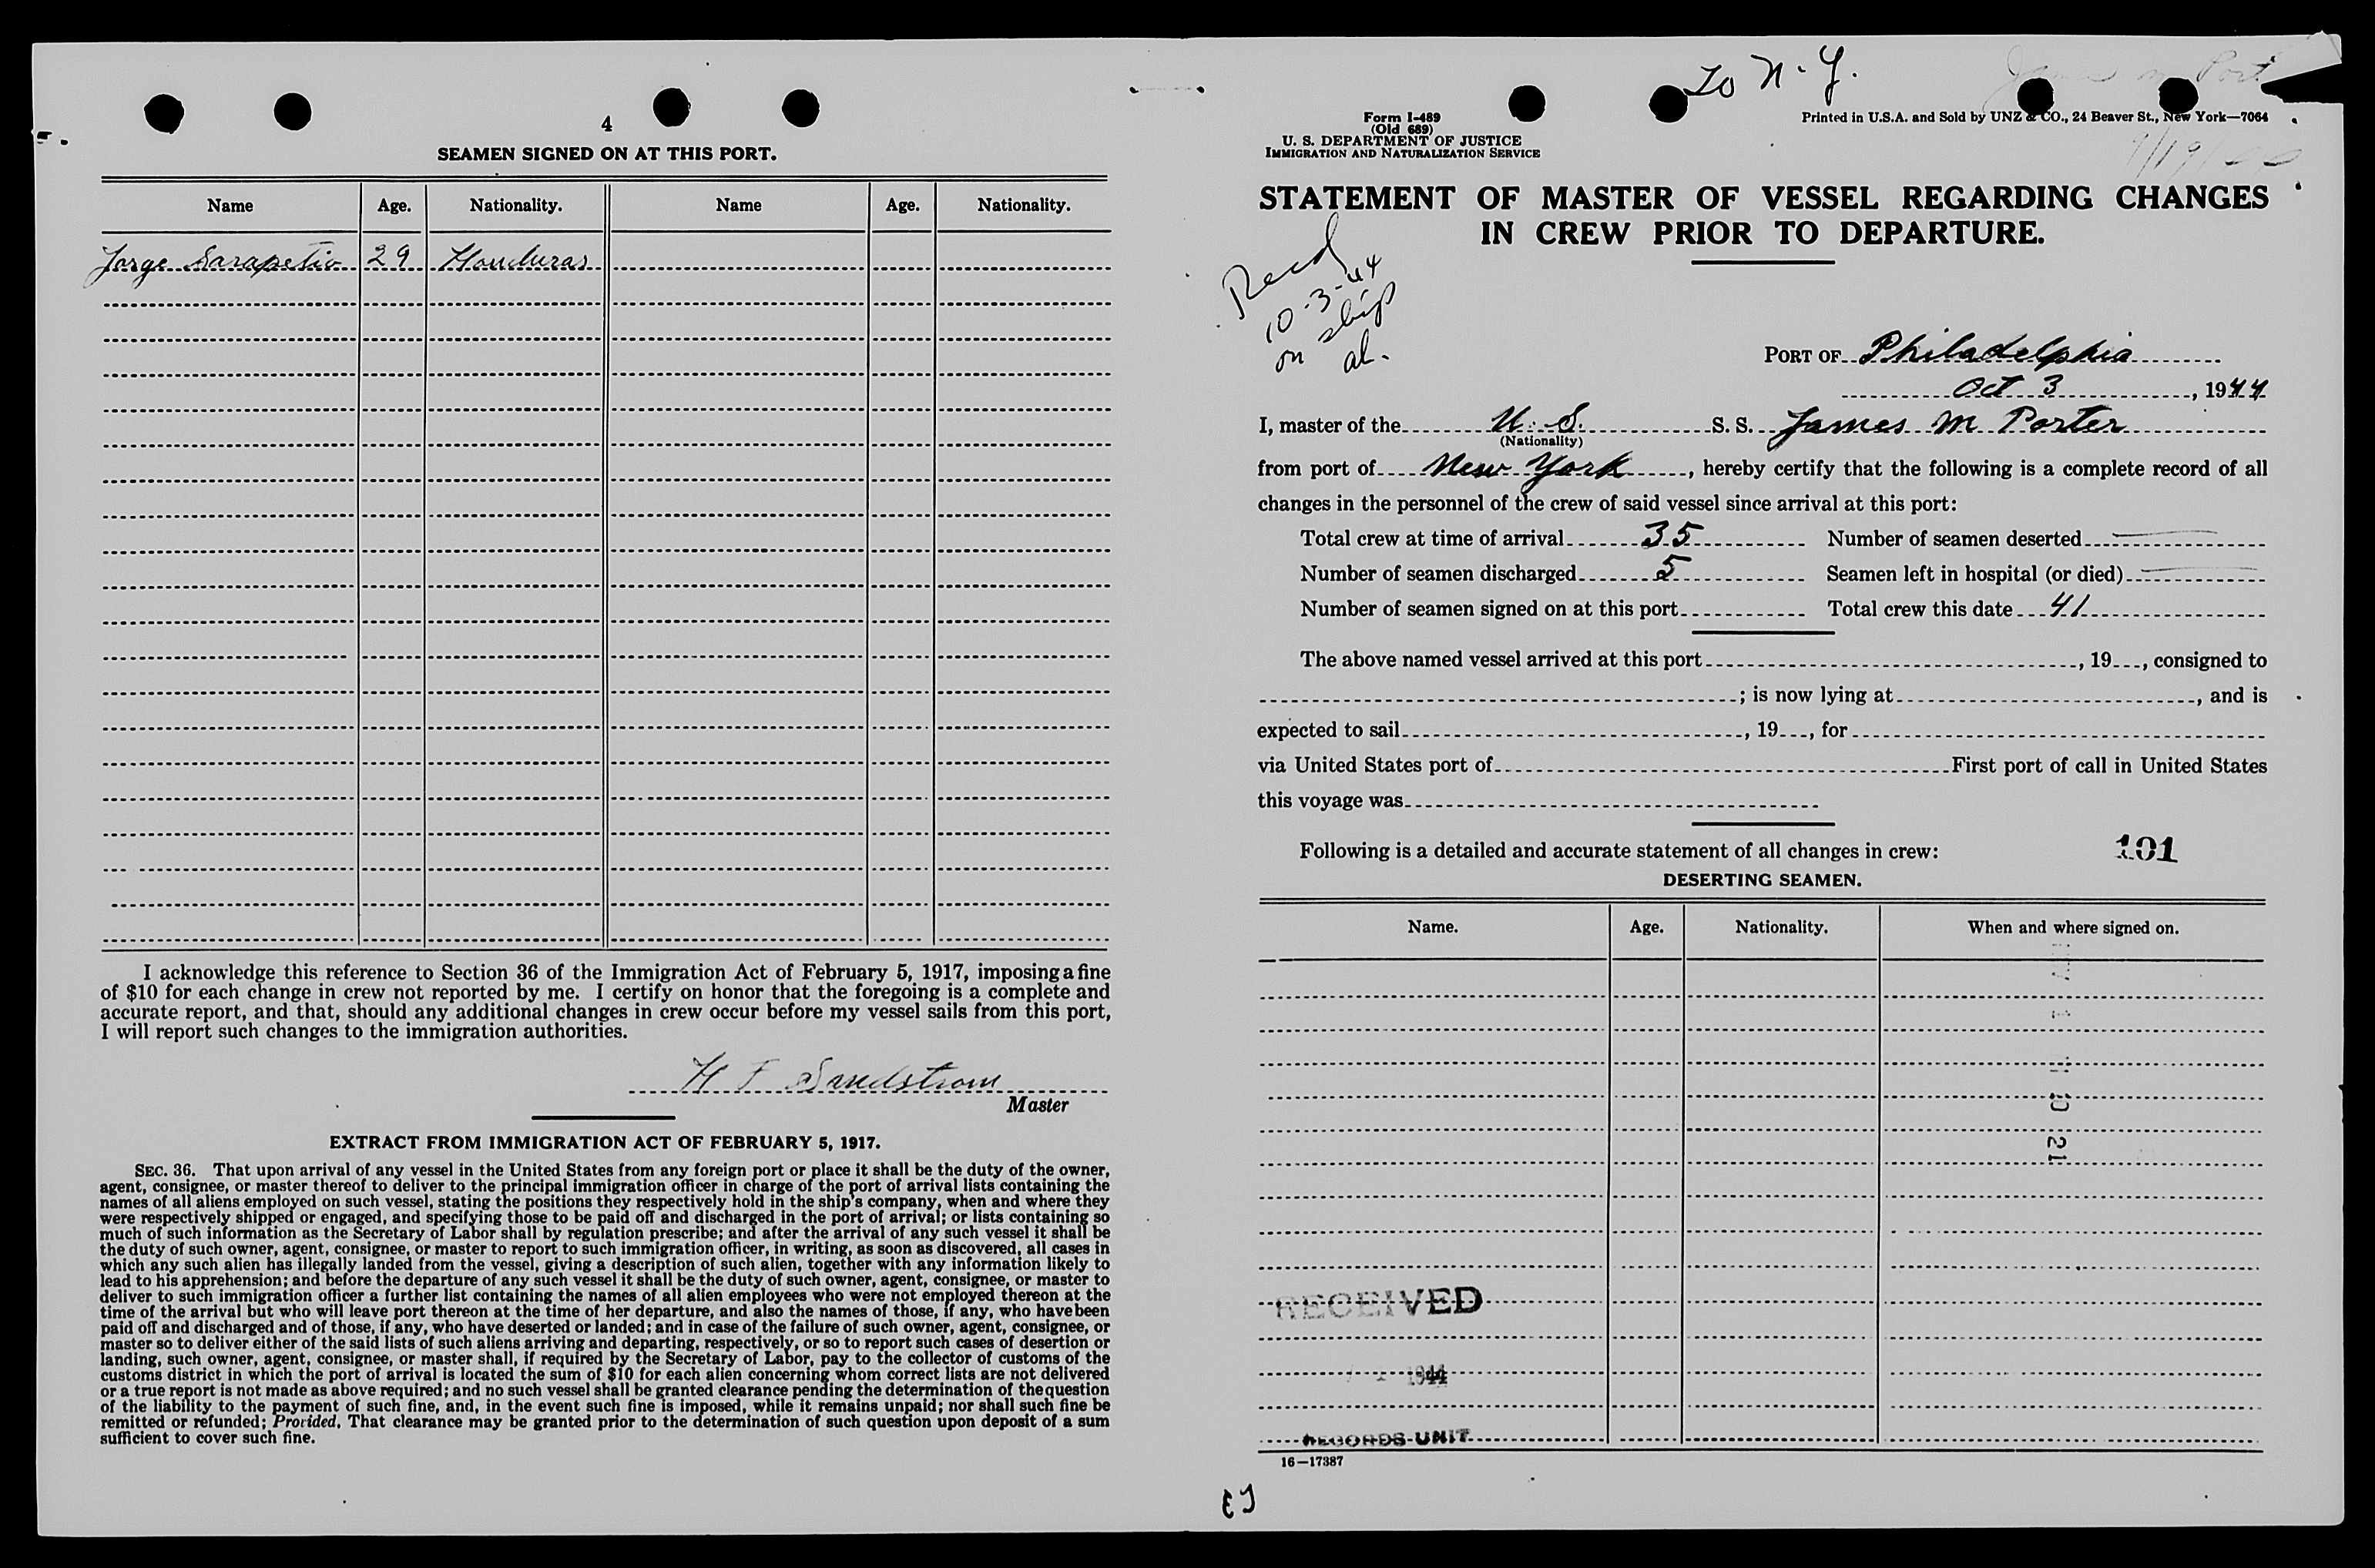 4
SEAMEN SIGNED ON AT THIS PORT.
Name Age. Nationality. Name Age. Nationality.
Jorge Sarapetio 29 Honduras
I acknowledge this reference to Section 36 of the Immigration Act of February 5, 1917, imposing a fine
of $10 for each change in crew not reported by me. I certify on honor that the foregoing is a complete and
accurate report, and that, should any additional changes in crew occur before my vessel sails from this port,
I will report such changes to the immigration authorities.
H F Sandstrom
Master
EXTRACT FROM IMMIGRATION ACT OF FEBRUARY 5, 1917.
SEC. 36. That upon arrival of any vessel in the United States from any foreign port or place it shall be the duty of the owner,
agent, consignee, or master thereof to deliver to the principal immigration officer in charge of the port of arrival lists containing the
names of all aliens employed on such vessel, stating the positions they respectively hold in the ship's company, when and where they
were respectively shipped or engaged, and specifying those to be paid off and discharged in the port of arrival; or lists containing so
much of such information as the Secretary of Labor shall by regulation prescribe; and after the arrival of any such vessel it shall be
the duty of such owner, agent, consignee, or master to report to such immigration officer, in writing, as soon as discovered, all cases in
which any such alien has illegally landed from the vessel, giving a description of such alien, together with any information likely to
lead to his apprehension; and before the departure of any such vessel it shall be the duty of such owner, agent, consignee, or master to
deliver to such immigration officer a further list containing the names of all alien employees who were not employed thereon at the
time of the arrival but who will leave port thereon at the time of her departure, and also the names of those, if any, who have been
paid off and discharged and of those, if any, who have deserted or landed; and in case of the failure of such owner, agent, consignee, or
master so to deliver either of the said lists of such aliens arriving and departing, respectively, or so to report such cases of desertion or
landing, such owner, agent, consignee, or master shall, if required by the Secretary of Labor, pay to the collector of customs of the
customs district in which the port of arrival is located the sum of $10 for each alien concerning whom correct lists are not delivered
or a true report is not made as above required; and no such vessel shall be granted clearance pending the determination of the question
of the liability to the payment of such fine, and, in the event such fine is imposed, while it remains unpaid; nor shall such fine be
remitted or refunded; Provided, That clearance may be granted prior to the determination of such question upon deposit of a sum
sufficient to cover such fine.
To N.Y.
Form I-489
(Old 689)
U. S. DEPARTMENT OF JUSTICE
IMMIGRATION AND NATURALIZATION SERVICE
Printed in U.S.A. and Sold by UNZ & CO., 24 Beaver St., New York—7064
STATEMENT OF MASTER OF VESSEL REGARDING CHANGES
IN CREW PRIOR TO DEPARTURE.
Recd
10-3-44
on ship
al.
PORT OF Philadelphia
Oct 3, 1944
I, master of the U. S. S. S. James M Porter
(Nationality)
from port of New York, hereby certify that the following is a complete record of all
changes in the personnel of the crew of said vessel since arrival at this port:
Total crew at time of arrival 35 Number of seamen deserted —
Number of seamen discharged 5 Seamen left in hospital (or died) —
Number of seamen signed on at this port Total crew this date 41
The above named vessel arrived at this port , 19 , consigned to
; is now lying at , and is
expected to sail , 19 , for
via United States port of First port of call in United States
this voyage was
Following is a detailed and accurate statement of all changes in crew:
101
DESERTING SEAMEN.
Name. Age. Nationality. When and where signed on.
10 21
RECEIVED
1944
RECORDS UNIT
16—17387